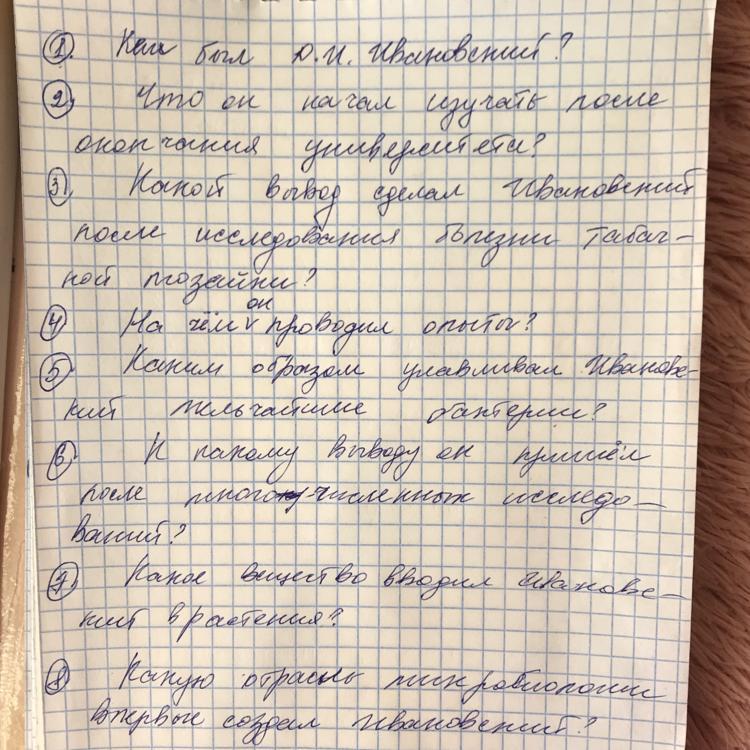 1. Кем был Д.И. Ивановский?
2. Что он начал изучать после
окончания университета?
3. Какой вывод сделал Ивановский
после исследования болезни табач-
ной мозайки?
4. На чём он проводил опыты?
5. Каким образом улавливал Ивановс-
кий мельчайшие бактерии?
6. К какому выводу он пришёл
после многочисленных исследо-
ваний?
7. Какое вещество вводил Ивановс-
кий в растения?
8. Какую отрасль микробиологии
впервые создал Ивановский?